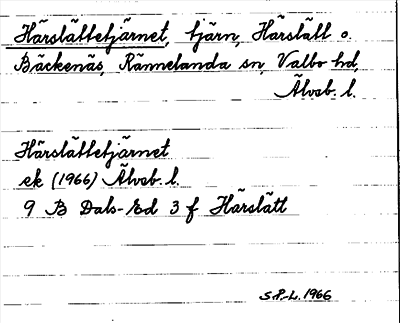 Härslättetjärnet, tjärn, Härslätt o.
Bäckenäs, Rännelanda sn, Valbo hd,
Älvsb. l.
Härslättetjärnet
ek (1966) Älvsb. l.
9 B Dals-Ed 3 f Härslätt
S.P.-L. 1966